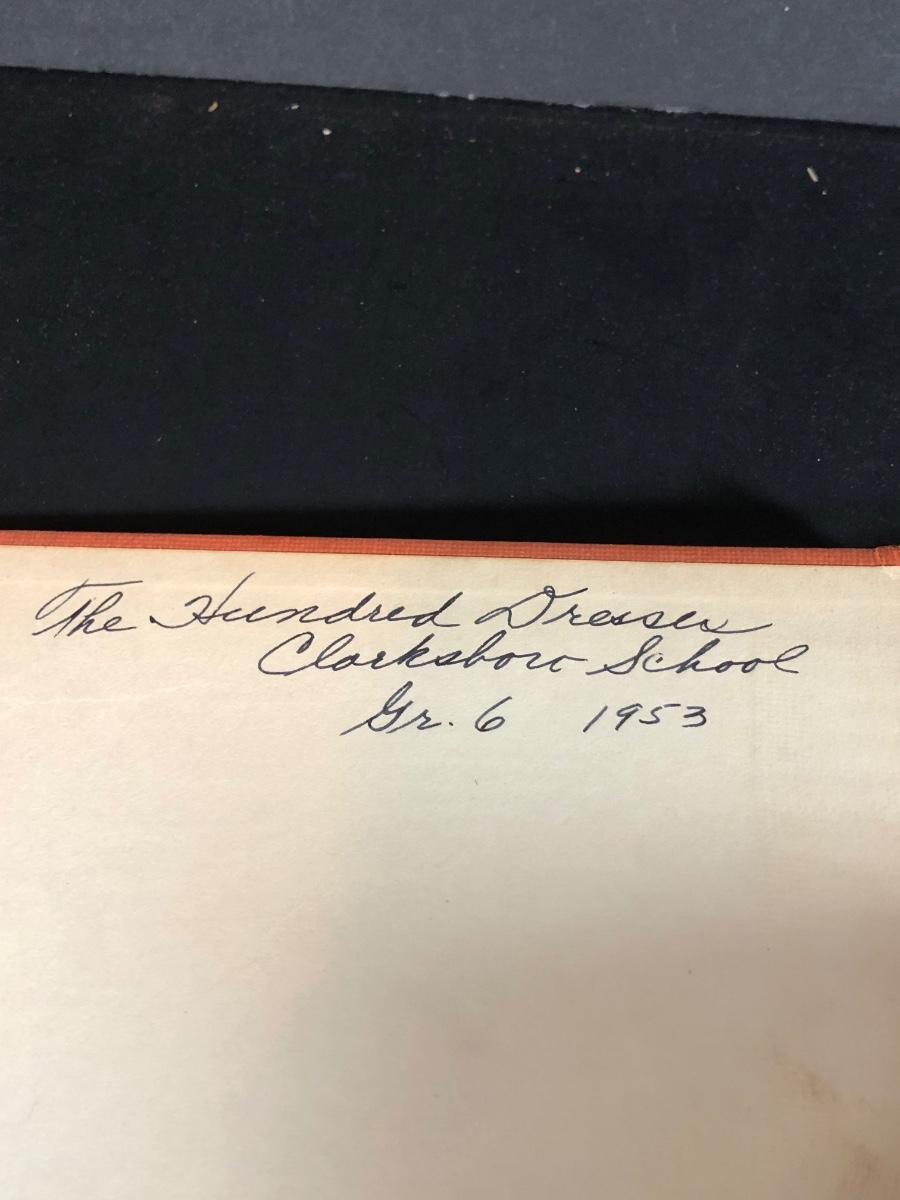 The Hundred Dresses
Clarksboro School
Gr. 6 1953